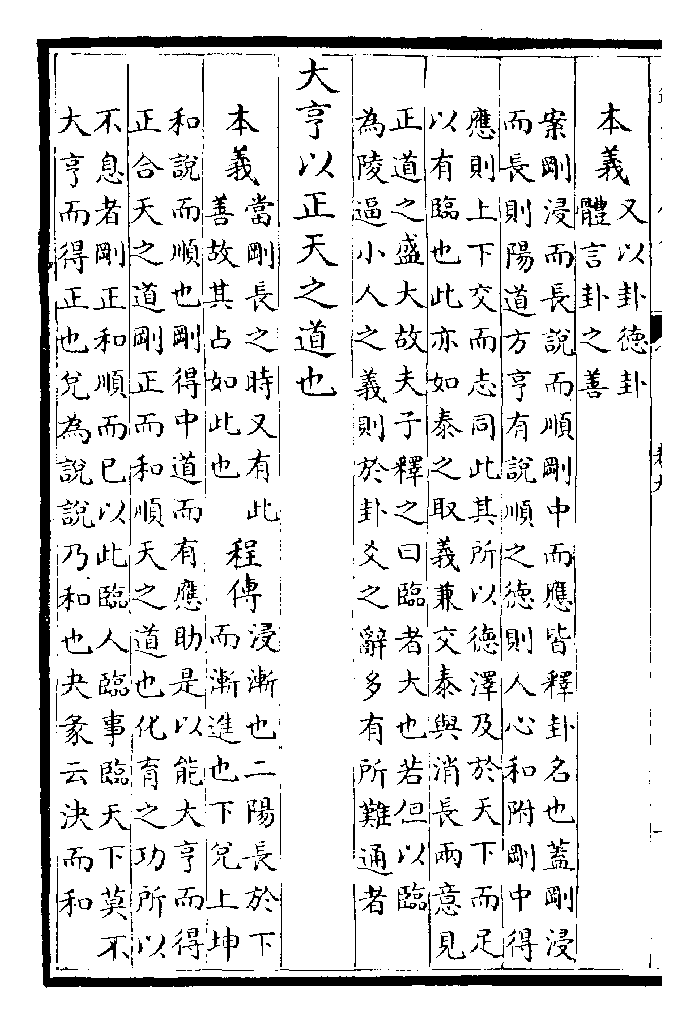 本義又以卦德卦
體言卦之善
案剛浸而長說而順剛中而應皆釋卦名也蓋剛浸
而長則陽道方亨有說順之德則人心和附剛中得
應則上下交而志同此其所以德澤及於天下而足
以有臨也此亦如泰之取義兼交泰與消長兩意見
正道之盛大故夫子釋之曰臨者大也若但以臨
為陵逼小人之義則於卦爻之辭多有所難通者
大亨以正天之道也
本義當剛長之時又有此
善故其占如此也
程傳浸漸也二陽長於下
而漸進也下兌上坤
和說而順也剛得中道而有應助是以能大亨而得
正合天之道剛正而和順天之道也化育之功所以
不息者剛正和順而已以此臨人臨事臨天下莫不
大亨而得正也兌為說說乃和也夬彖云決而和